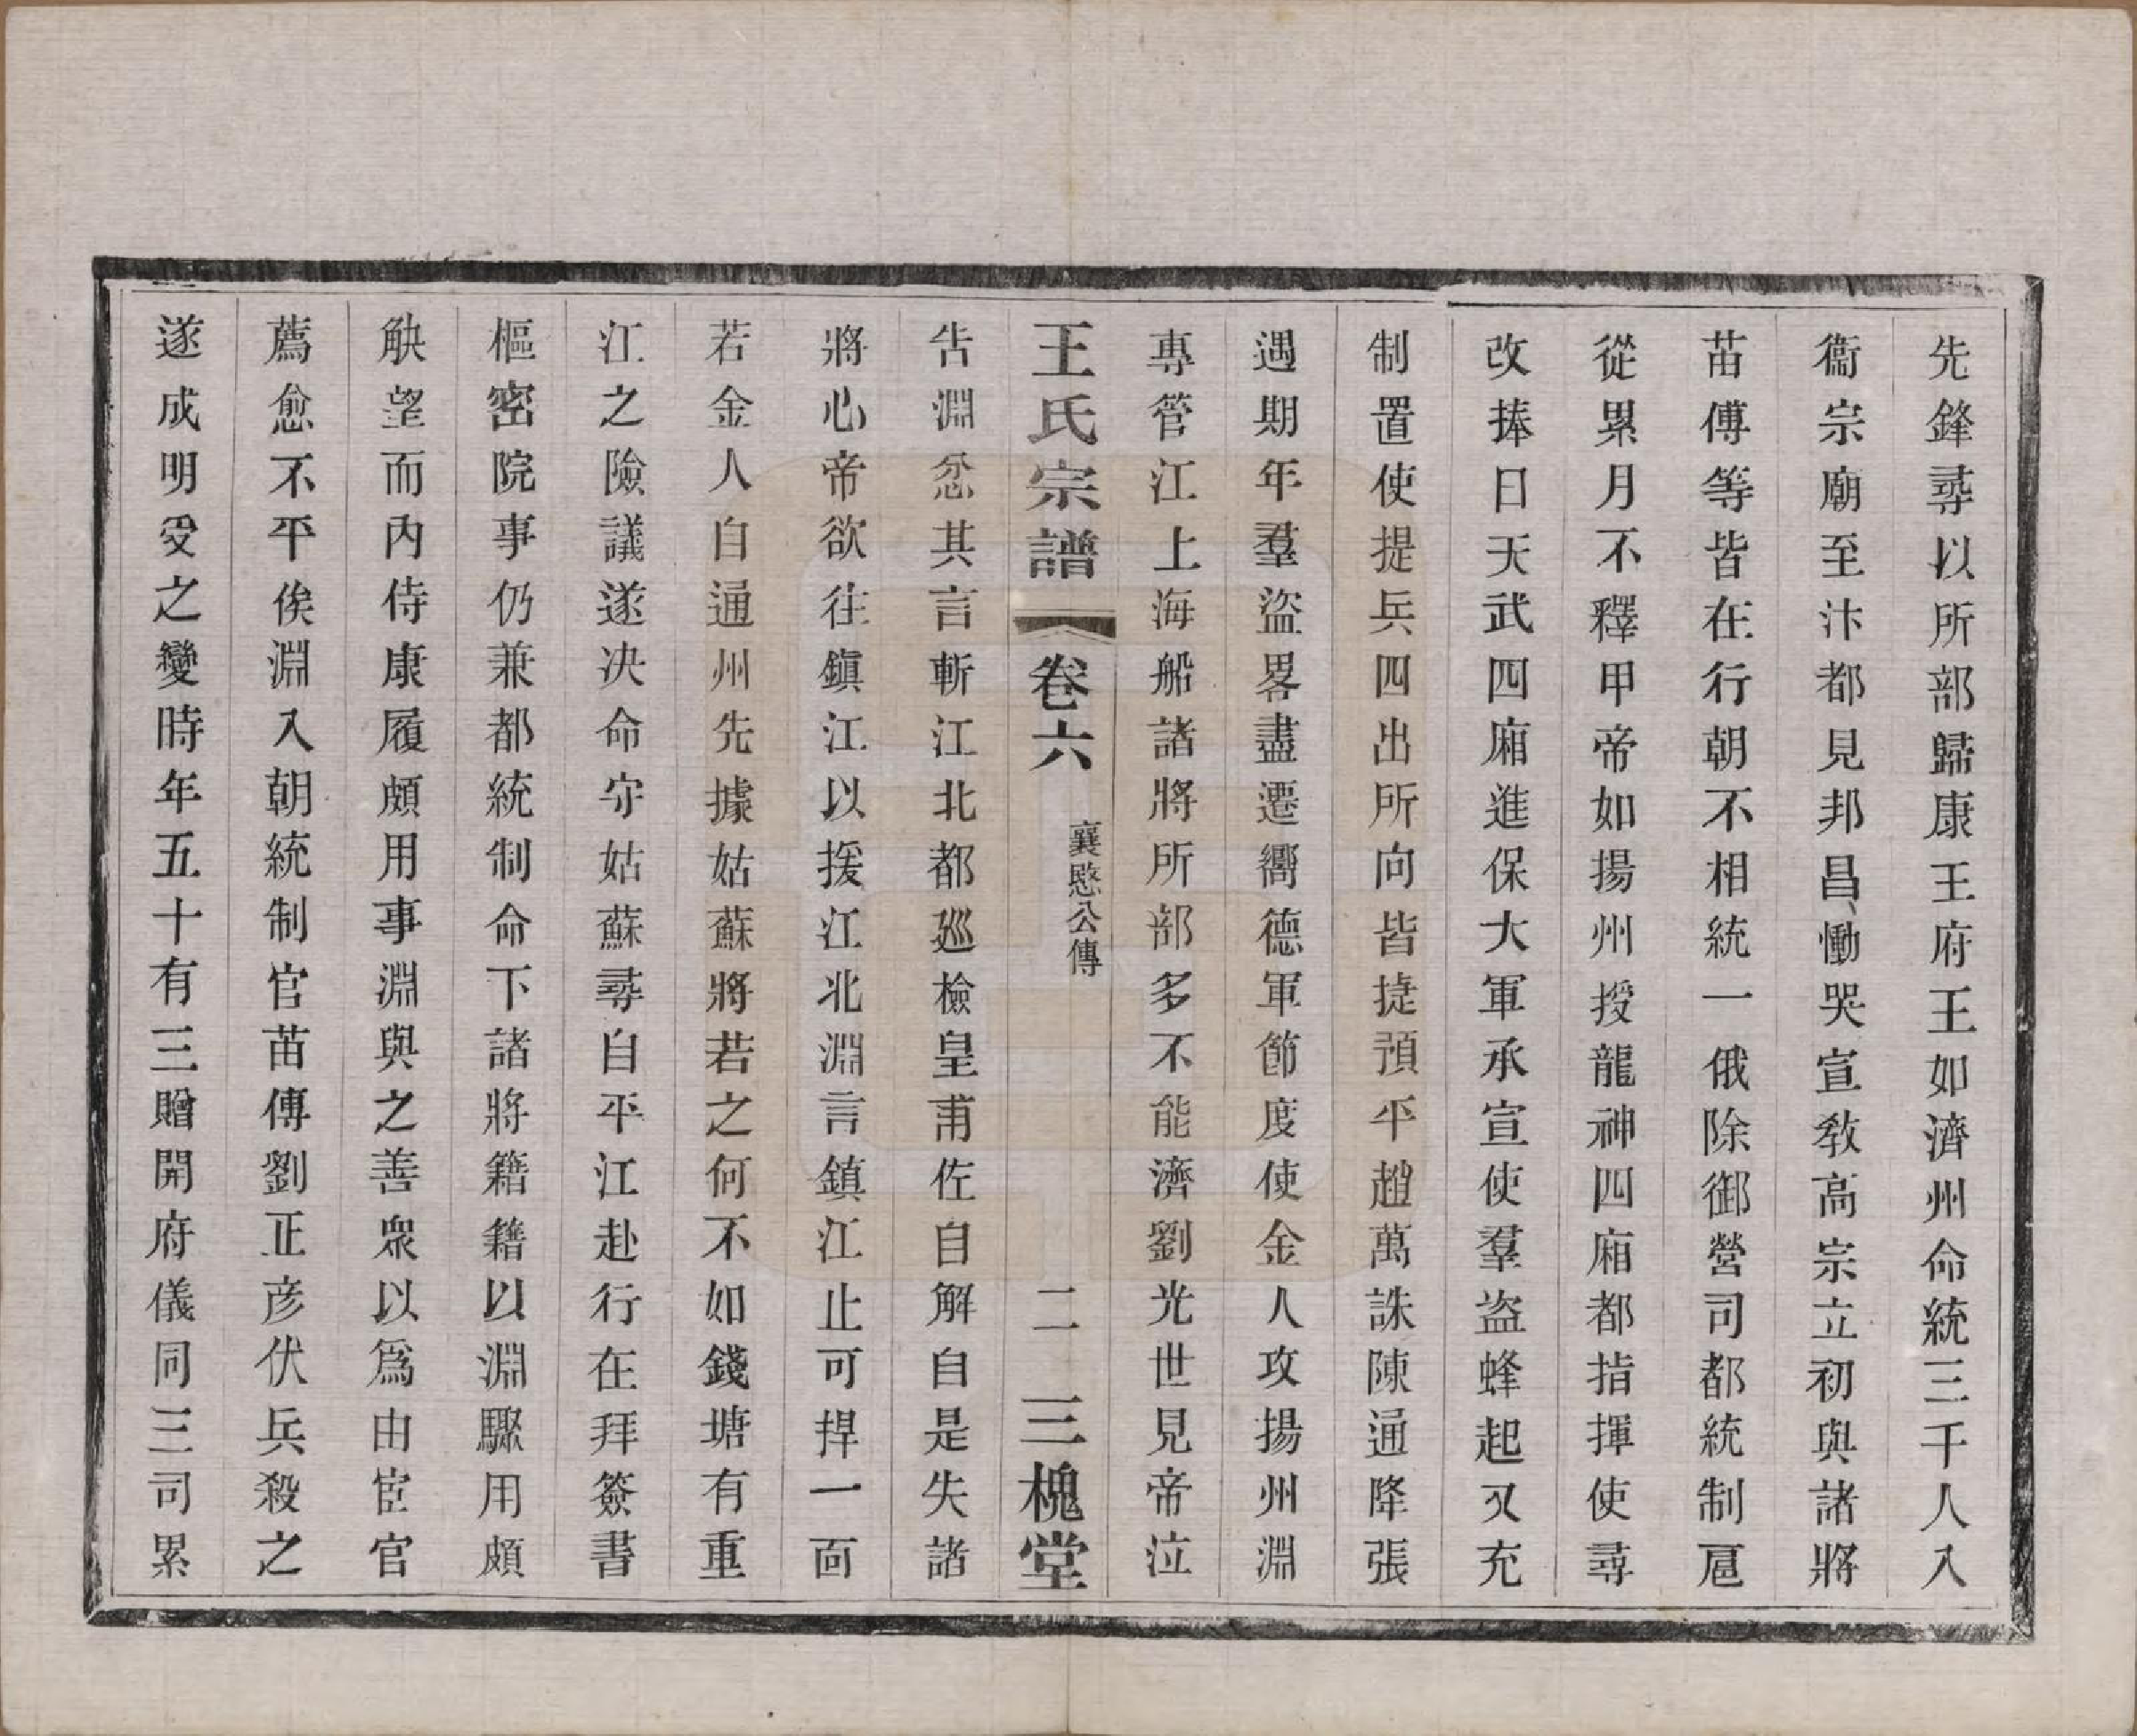 先鋒尋以所部歸康王府王如濟州命統三千人入
衞宗廟至汴都見邦昌慟哭宣敎高宗立初與諸將
苗傅等皆在行朝不相統一俄除御營司都統制扈
從累月不釋甲帝如揚州授龍神四廂都指揮使尋
改捧日天武四廂進保大軍承宣使羣盜蜂起又充
制置使提兵四出所向皆捷預平趙萬誅陳通降張
遇期年羣盜畧盡遷嚮德軍節度使金人攻揚州淵
專管江上海船諸將所部多不能濟劉光世見帝泣
王氏宗譜 卷六 襄愍公傳 二 三槐堂
告淵忿其言斬江北都廵檢皇甫佐自解自是失諸
將心帝欲往鎭江以援江北淵言鎭江止可捍一面
若金人自通州先據姑蘇將若之何不如錢塘有重
江之險議遂决命守姑蘇尋自平江赴行在拜簽書
樞密院事仍兼都統制命下諸將籍籍以淵驟用頗
觖望而內侍康履頗用事淵與之善眾以爲由宦官
薦愈不平俟淵入朝統制官苗傅劉正彥伏兵殺之
遂成明受之變時年五十有三贈開府儀同三司累